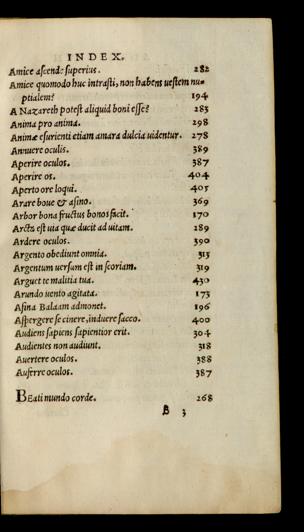 INDEX.
Amice ascende superius. 282
Amice quomodo huc intrasti, non habens uestem nu-
ptialem? 194
A Nazareth potest aliquid boni esse? 283
Anima pro anima. 298
Animæ esurienti etiam amara dulcia uidentur. 278
Annuere oculis. 389
Aperire oculos. 387
Aperire os. 404
Aperto ore loqui. 405
Arare boue & asino. 369
Arbor bona fructus bonos facit. 170
Arcta est uia quæ ducit ad uitam. 289
Ardere oculos. 390
Argento obediunt omnia. 315
Argentum uersum est in scoriam. 319
Arguet te malitia tua. 430
Arundo uento agitata. 173
Asina Balaam admonet. 196
Aspergere se cinere, induere sacco. 400
Audiens sapiens sapientior erit. 304
Audientes non audiunt. 318
Auertere oculos. 388
Auferre oculos. 387
BEati mundo corde. 268
B 3